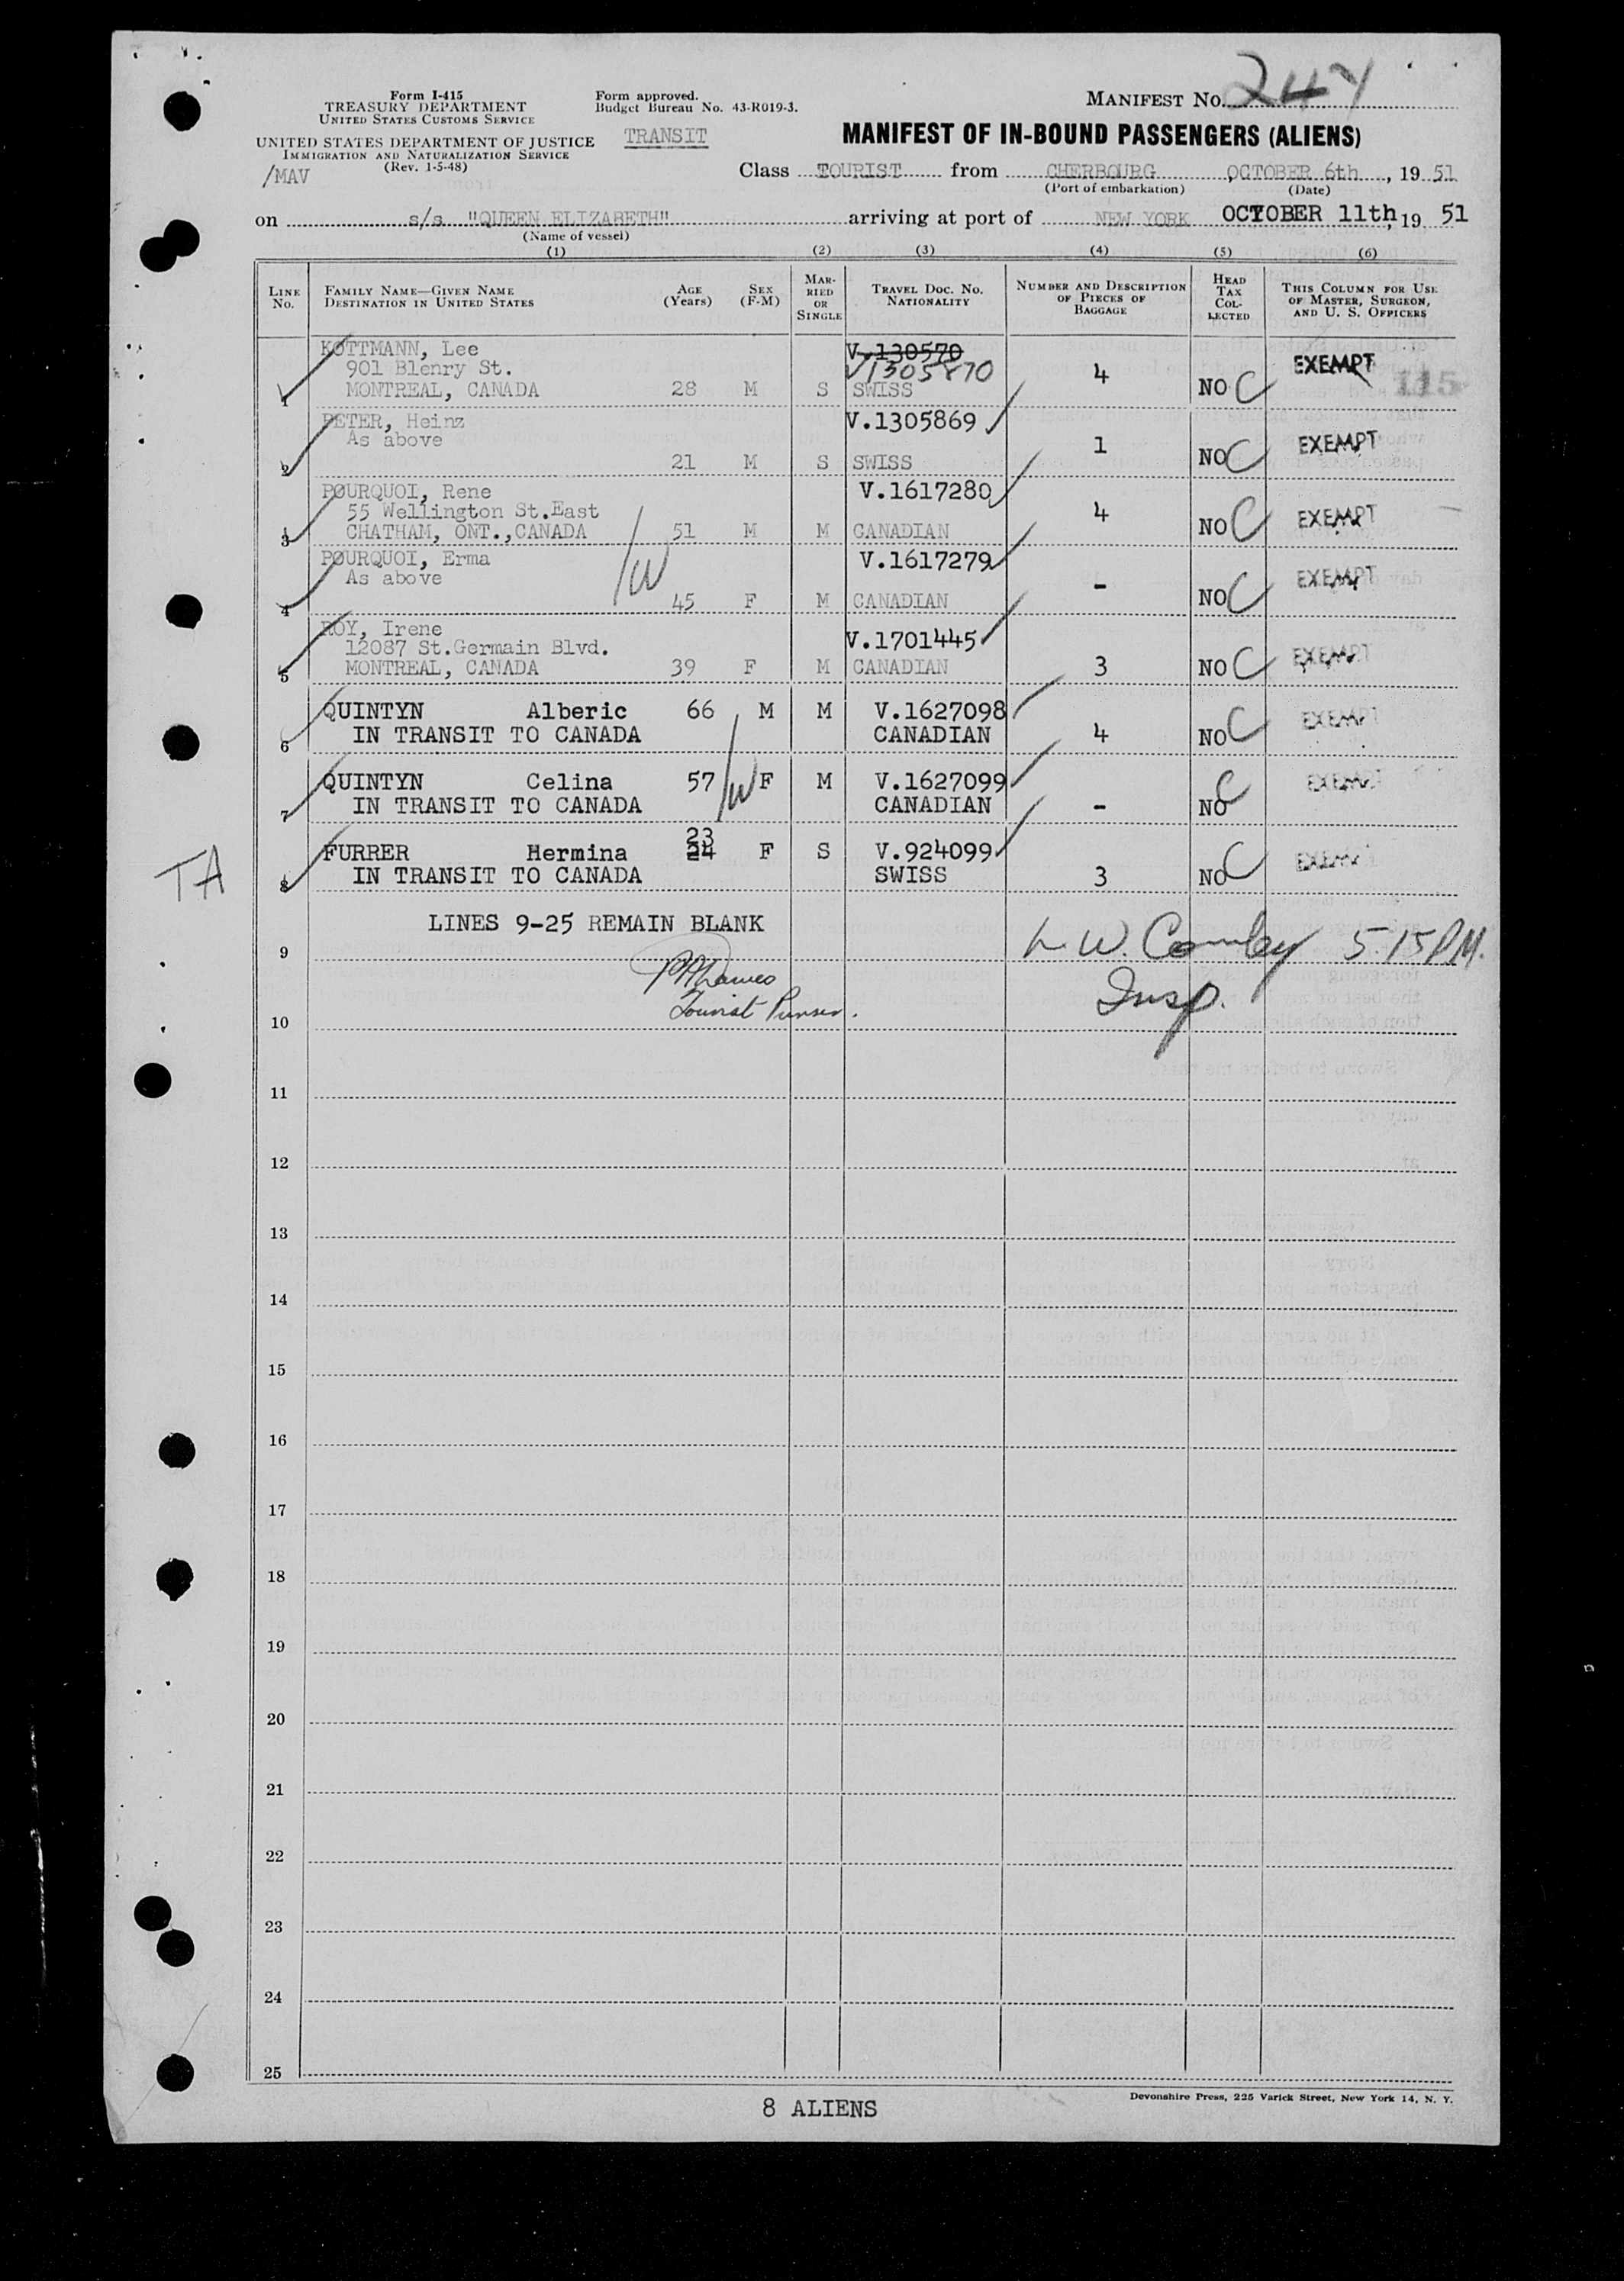 Form I-415
TREASURY DEPARTMENT
UNITED STATES CUSTOMS SERVICE
UNITED STATES DEPARTMENT OF JUSTICE
IMMIGRATION AND NATURALIZATION SERVICE
(Rev. 1-5-48)
/MAV
Form approved.
Budget Bureau No. 43-R019-3.
TRANSIT
MANIFEST No. 244
MANIFEST OF IN-BOUND PASSENGERS (ALIENS)
Class TOURIST from CHERBOURG, OCTOBER 6th, 19 51
(Port of embarkation) (Date)
on s/s "QUEEN ELIZABETH" arriving at port of NEW YORK OCTOBER 11th, 19 51
(Name of vessel)
(1) (2) (3) (4) (5) (6)
LINE No. FAMILY NAME—GIVEN NAME DESTINATION IN UNITED STATES AGE (Years) SEX (F-M) MARRIED OR SINGLE TRAVEL DOC. NO. NATIONALITY NUMBER AND DESCRIPTION OF PIECES OF BAGGAGE HEAD TAX COLLECTED THIS COLUMN FOR USE OF MASTER, SURGEON, AND U. S. OFFICERS
KOTTMANN, Lee V.130570
901 Blenry St. V1305870 4 EXEMPT
1 MONTREAL, CANADA 28 M S SWISS NO C 115
PETER, Heinz V.1305869
As above 1 EXEMPT
2 21 M S SWISS NO C
POURQUOI, Rene V.1617280
55 Wellington St.East 4 EXEMPT
3 CHATHAM, ONT.,CANADA 51 M M CANADIAN NO C
POURQUOI, Erma V.1617279
As above - EXEMPT
4 /W 45 F M CANADIAN NO C
ROY, Irene V.1701445
12087 St.Germain Blvd. EXEMPT
5 MONTREAL, CANADA 39 F M CANADIAN 3 NO C
QUINTYN Alberic 66 M M V.1627098 EXEMPT
6 IN TRANSIT TO CANADA CANADIAN 4 NO C
QUINTYN Celina 57 /W F M V.1627099 EXEMPT
7 IN TRANSIT TO CANADA CANADIAN - NO C
23
TA FURRER Hermina 24 F S V.924099 EXEMPT
8 IN TRANSIT TO CANADA SWISS 3 NO C
LINES 9-25 REMAIN BLANK
9 L. W. Comley 5.15 P.M.
Tourist Purser. Insp.
10
11
12
13
14
15
16
17
18
19
20
21
22
23
24
25
8 ALIENS
Devonshire Press, 225 Varick Street, New York 14, N. Y.